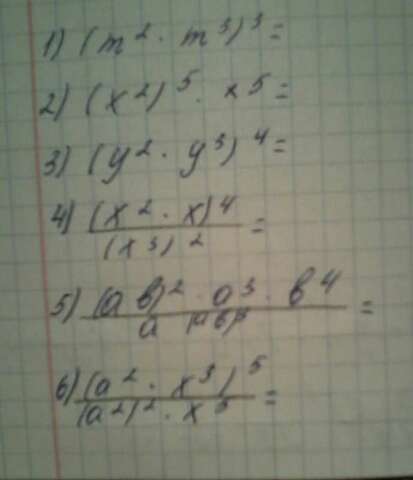 1) (m² · m³)³ =
2) (x²)⁵ · x⁵ =
3) (y² · y³)⁴ =
4) (x² · x)⁴
(x³)² =
5) (a b)² · a³ · b⁴
a (ab)³ =
6) (a² · x³)⁵
(a²)² · x⁵ =